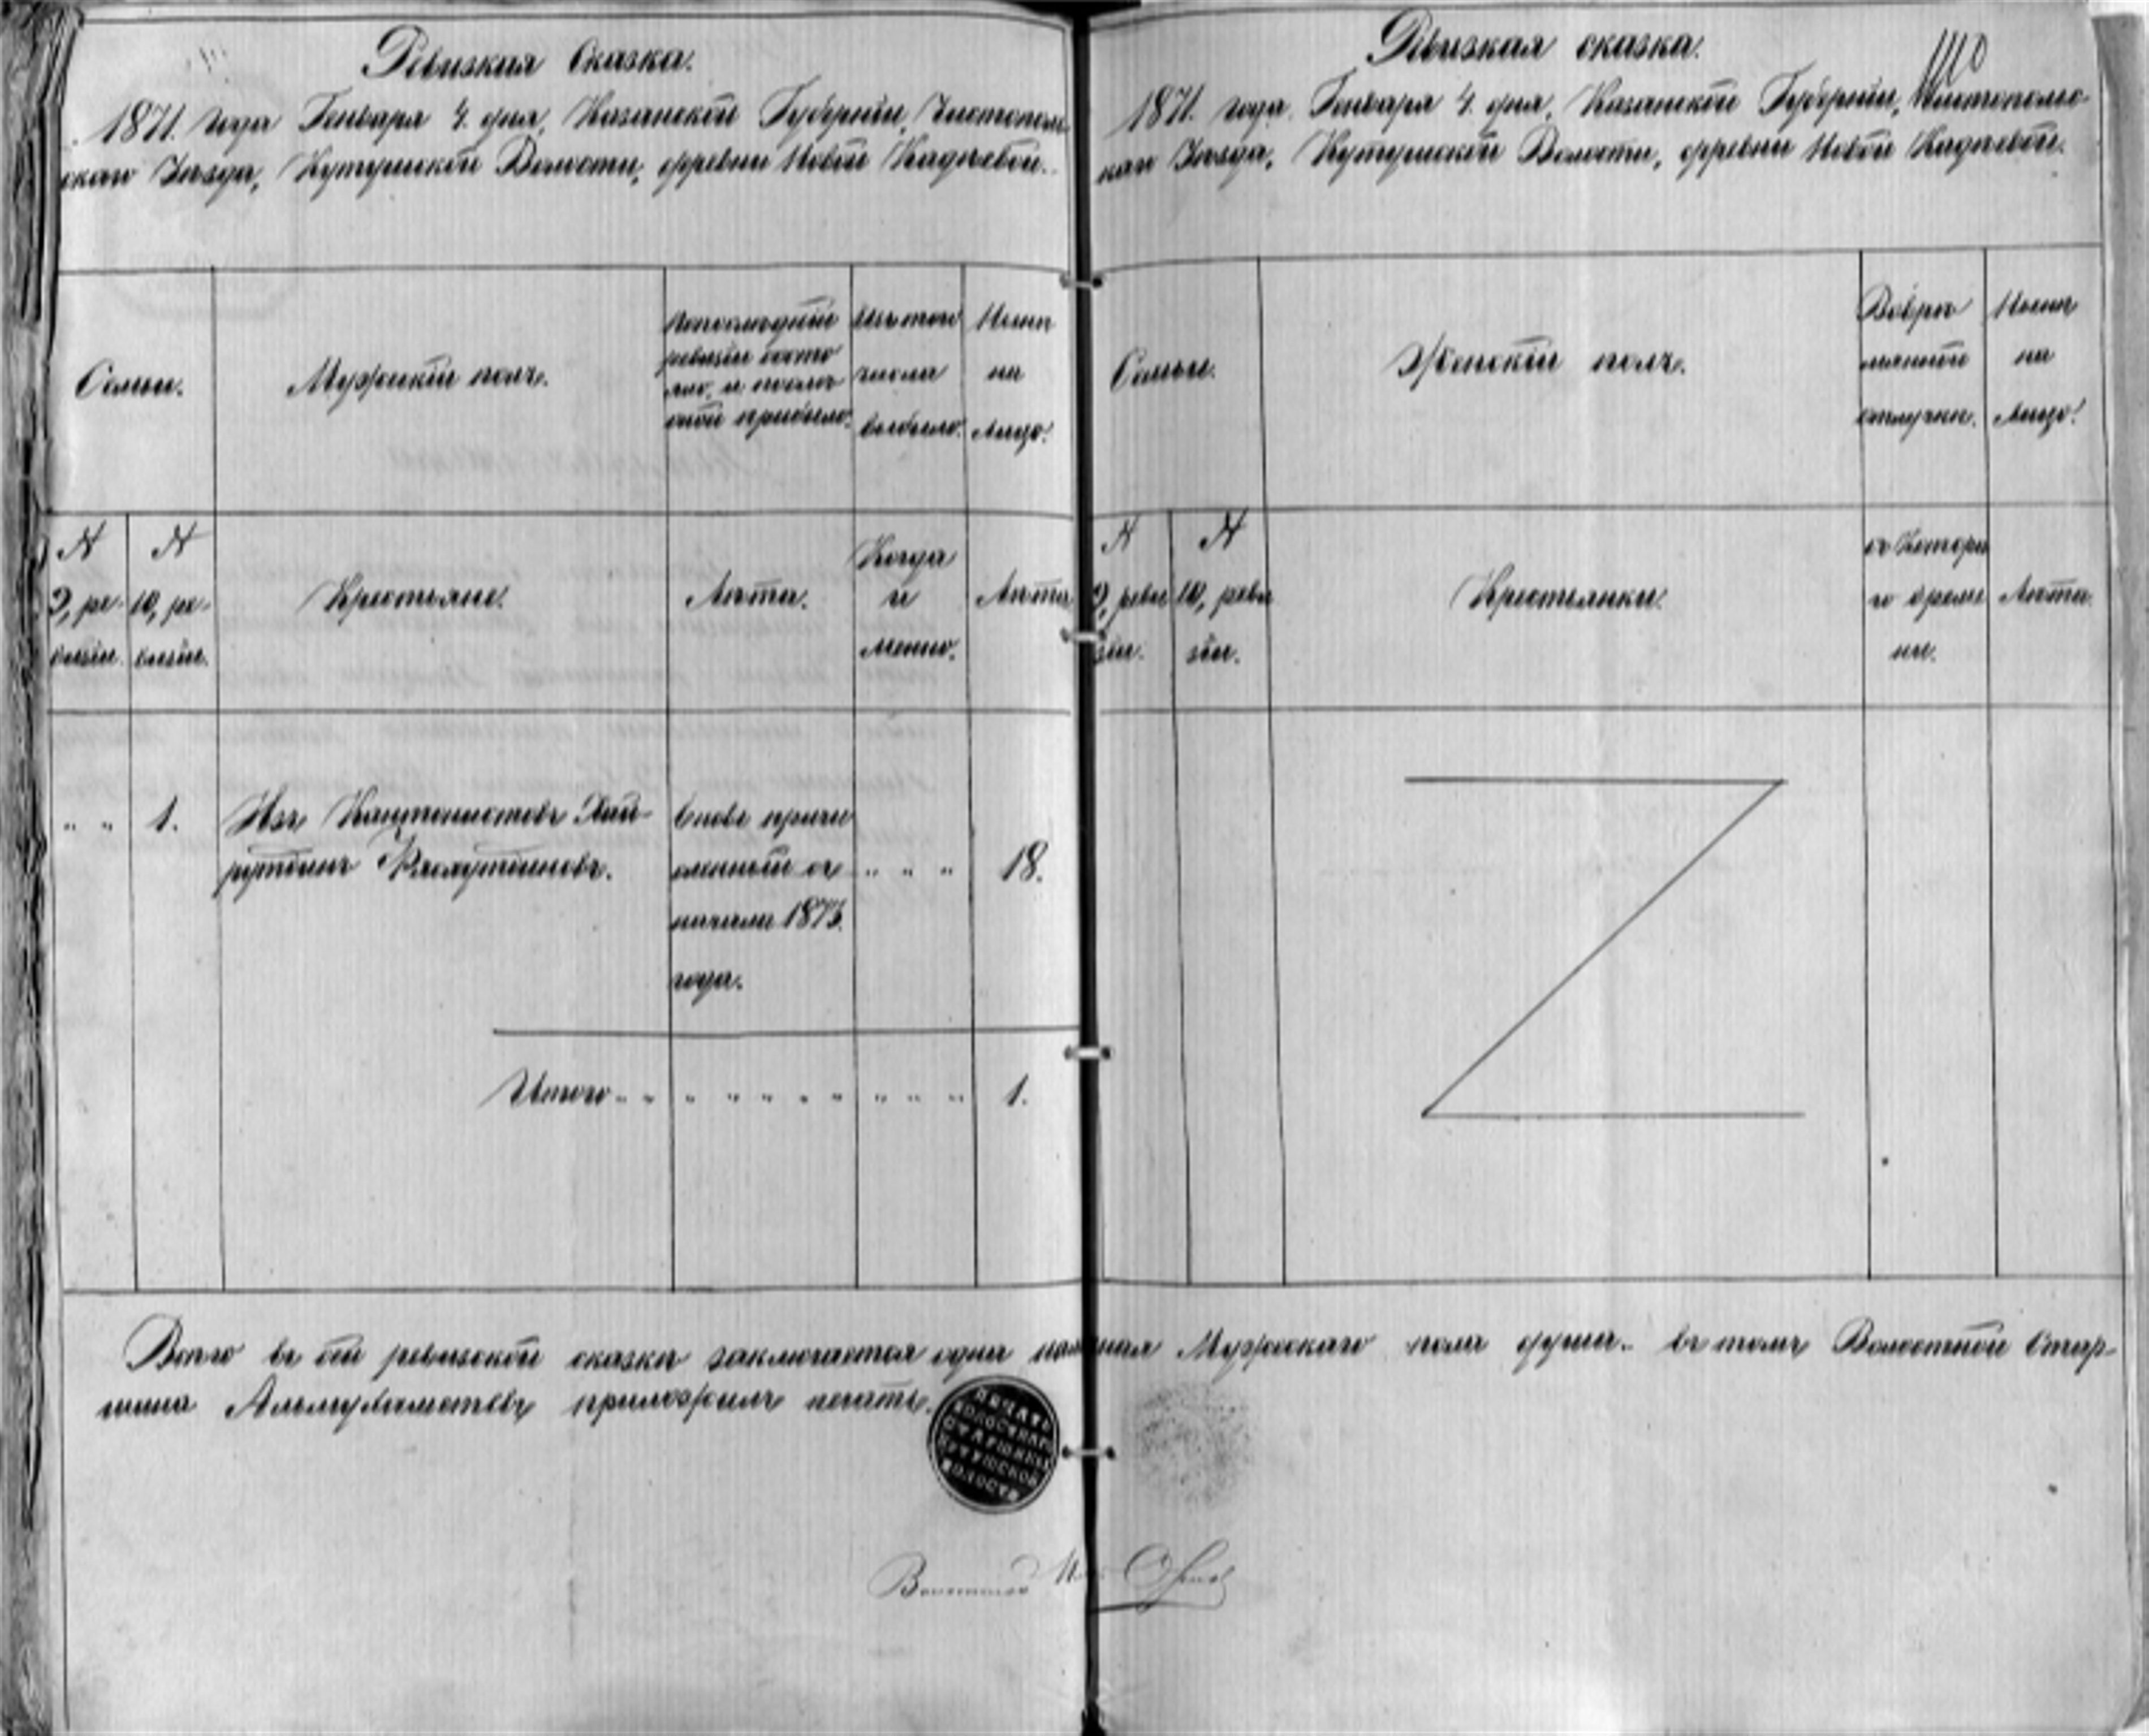 Ревизкая Сказка.
1871. года Генваря 4. дня, Казанской Губерніи, Чистополь-
скаго Уѣзда, Кутушской Волости, дрревни Новой Кадѣевой.
Семьи.
Мужскій полъ.
По послѣдней
ревизіи состо
яло, и послѣ
оной прибыло.
Изъ того
числа
выбыло.
Нынѣ
на
лицо.
N
9, ре-
визіи.
N
10, ре-
визіи.
Крестьяне.
Лѣта.
Когда
и
менно.
Лѣта
" "
1.
Изъ Кантонистовъ Хай-
рутдинъ
Вновь причи
сленный съ
начала
года.
" " "
18.
Итого " " " " " " " " " "
1.
Ревизкая сказка.
1871. года Генваря 4. дня, Казанской Губерніи, Чистопольс-
каго Уѣзда, Кутушской Волости, дрревни Новой Кадѣевой.
Семьи.
Женскій полъ.
Вовре
мянной
отлучки.
Нынѣ
на
лицо.
N
9, реви
зіи.
N
10, реви
зіи.
Крестьянки.
съ котора
го време
ни.
Лѣта.
Всего въ сей ревизской сказки заключается одна наличная Мужскаго пола душа. въ томъ Волостной Стар-
шина приложилъ печать.
ПЕЧАТЬ
ВОЛОСТНАГО
СТАРШИНЫ
КУТУШСКОЙ
ВОЛОСТИ
Волостной